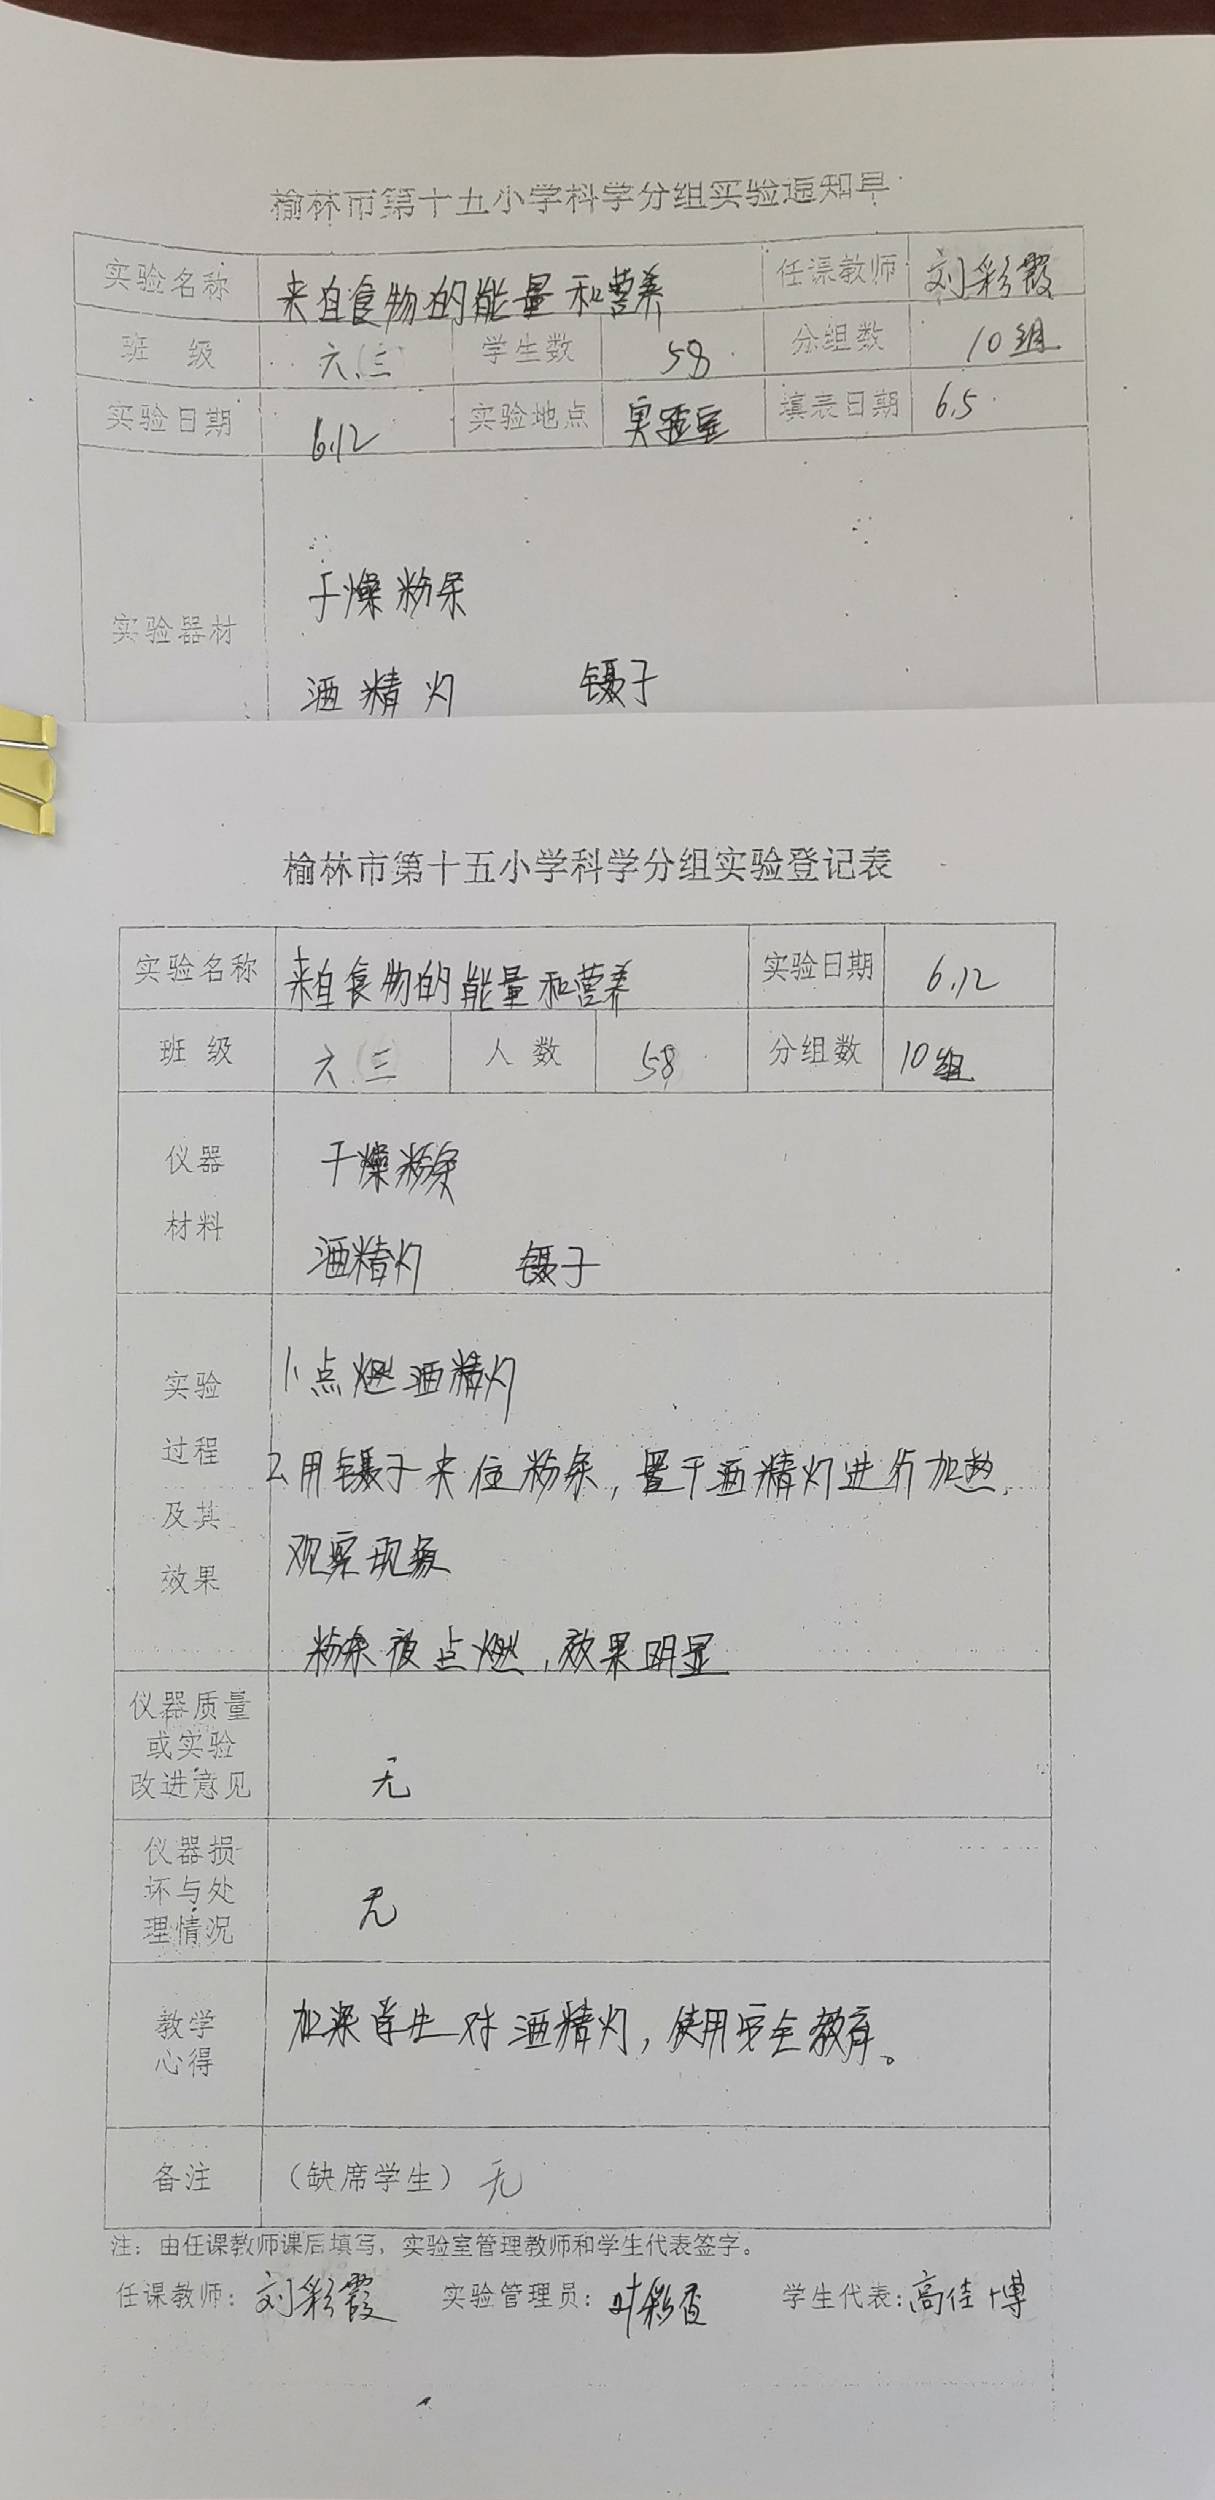 榆林市第十五小学科学分组实验通知单
实验名称 来自食物的能量和营养 任课教师 刘彩霞
班 级 六.(三) 学生数 58 分组数 10组
实验日期 6.12 实验地点 实验室 填表日期 6.5
干燥粉条
实验器材
酒精灯 镊子
榆林市第十五小学科学分组实验登记表
实验名称 来自食物的能量和营养 实验日期 6.12
班 级 六.(三) 人 数 58 分组数 10组
仪器 干燥粉条
材料
酒精灯 镊子
实验 1、点燃酒精灯
过程 2、用镊子夹住粉条,置于酒精灯进行加热,
及其
效果 观察现象
粉条被点燃,效果明显
仪器质量
或实验
改进意见 无
仪器损
坏与处
理情况 无
教学 加深学生对酒精灯,使用安全教育。
心得
备注 (缺席学生) 无
注:由任课教师课后填写,实验室管理教师和学生代表签字。
任课教师:刘彩霞 实验管理员: 学生代表:高佳博